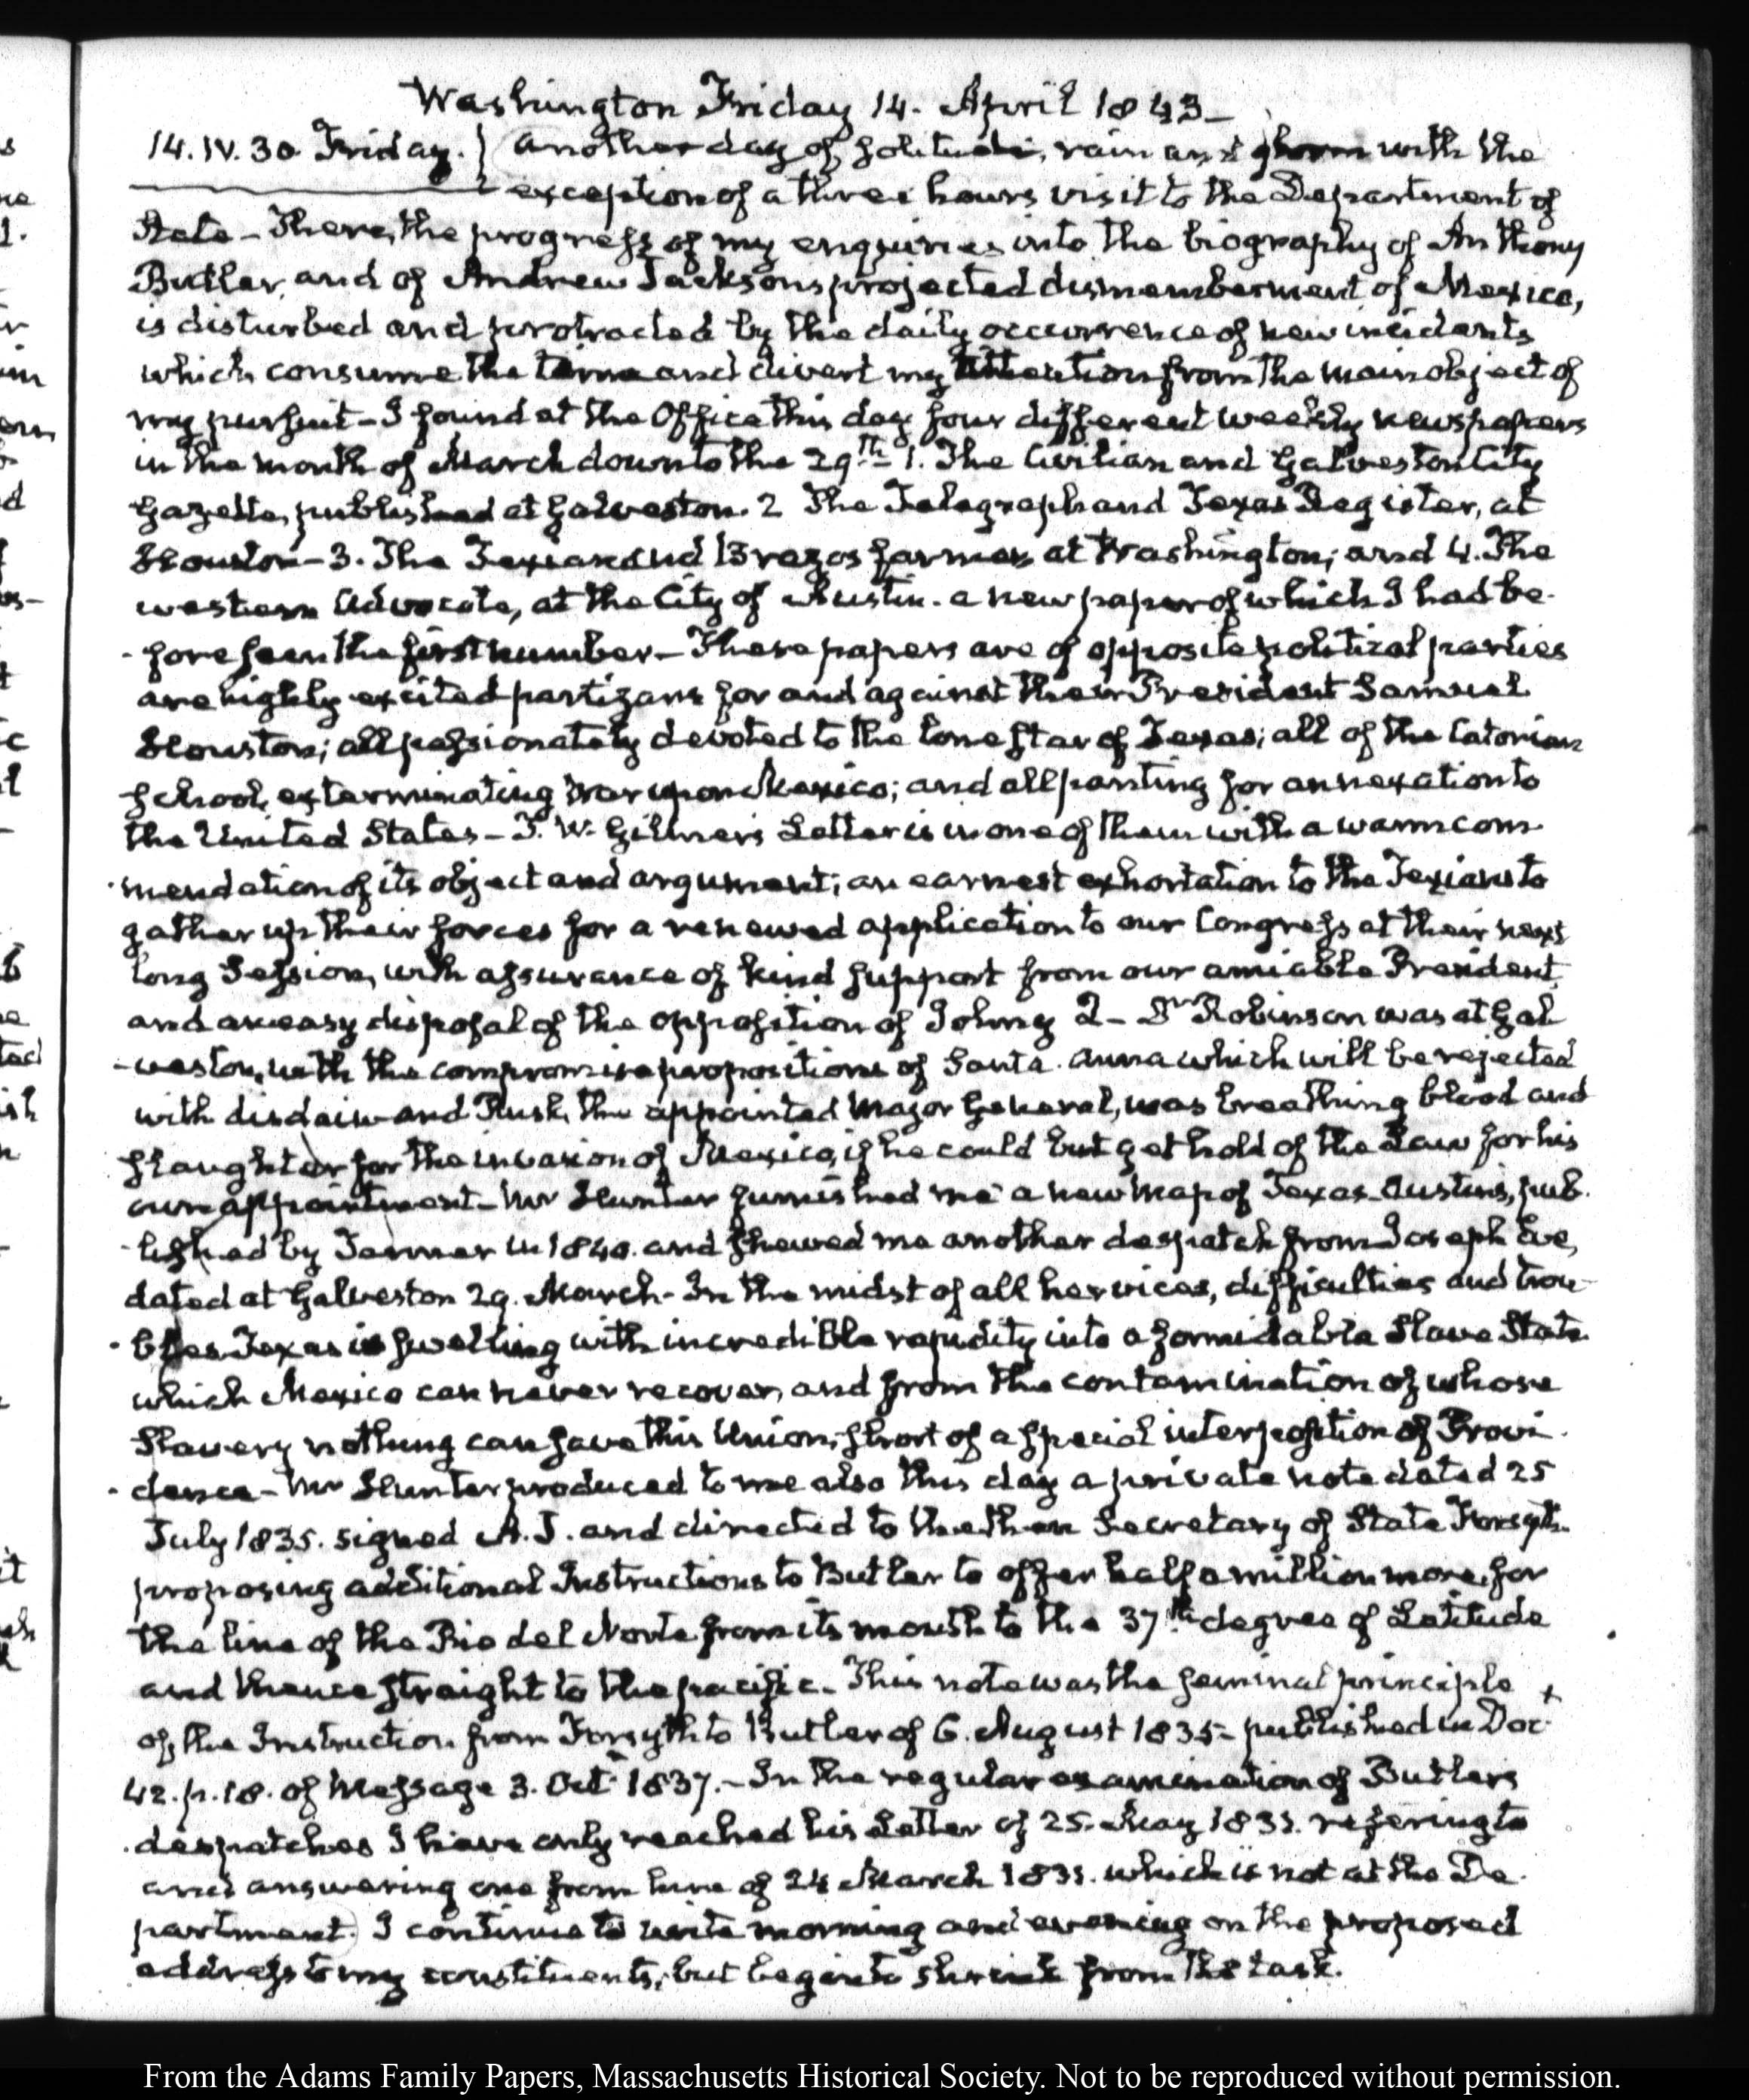 Washington Friday 14. April 1843_
14. IV. 30 Friday. Another day of solitude, rain and gloom with the
exception of a three hours visit to the Department of
State_ There, the progress of my enquiries into the biography of Anthony
Butler, and of Andrew Jacksons projected dismemberment of Mexico,
is disturbed and protracted by the daily occurrence of new incidents
which consume the time and divert my attention from the main object of
my pursuit_ I found at the Office this day four different weekly newspapers
in the month of March down to the 29th. 1. The Civilian and Galveston City
Gazette, published at Galveston. 2 The Telegraph and Texas Register, at
Houston_ 3. The Texian and Brazos farmer at Washington; and 4. The
western Advocate, at the City of Austin. a new paper of which I had be-
-fore seen the first number_ These papers are of opposite political parties
are highly excited partizans for and against their President Samuel
Houston; all passionately devoted to the lone star of Texas; all of the Catonian
school, exterminating War upon Mexico; and all panting for annexation to
the United States_ T. W. Gilmer's Letter is in one of them with a warm com-
-mendation of its object and argument; an earnest exhortation to the Texians to
gather up their forces for a renewed application to our Congress at their next
long Session, with assurance of kind support from our amiable President
and an easy disposal of the opposition of Johny Q_ Dr Robinson was at Gal
-veston, with the compromise propositions of Santa. Anna which will be rejected
with disdain and Rush, the appointed Major General, was breathing blood and
slaughter for the invasion of Mexico, if he could but get hold of the Law for his
own appointment_ Mr Hunter furnished me a new Map of Texas Austin's, pub-
-lished by Tanner in 1840. and shewed me another despatch from Joseph Eve,
dated at Galveston 29. March_ In the midst of all her vices, difficulties and trou-
-bles Texas is swelling with incredible rapidity into a formidable Slave State
which Mexico can never recover, and from the contamination of whose
Slavery nothing can save this Union, short of a special interposition of Provi-
-dence_ Mr Hunter produced to me also this day a private note dated 25
July 1835. signed A. J. and directed to the then Secretary of State Forsyth
proposing additional Instructions to Butler to offer half a million more, for
the line of the Rio del Norte from its mouth to the 37th degree of Latitude
and thence straight to the pacific_ This note was the seminal principle +
of the Instruction from Forsyth to Butler of 6. August 1835_ published in Doc.
42. p. 18. of Message 3. Oct. 1837._ In the regular examination of Butlers
despatches I have only reached his Letter of 25. May 1831. refering to
and answering one from him of 24 March 1831. which is not at the De-
partment. I continue to write morning and evening on the proposed
address to my constituents; but begin to shrink from the task.
From the Adams Family Papers, Massachusetts Historical Society. Not to be reproduced without permission.